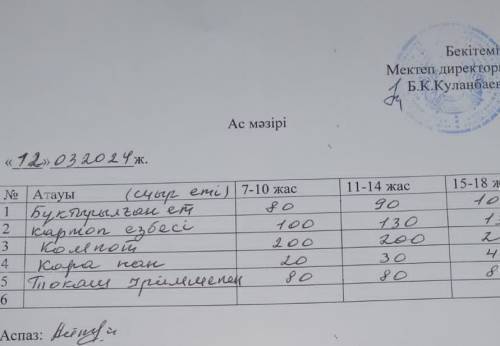 Бекітемін
Мектеп директоры
Б.К.Куланбаев
Ас мәзірі
«12» 03 2024 ж.
№ Атауы (сиыр еті) 7-10 жас 11-14 жас 15-18 ж
1 Бұқтырылған ет 80 90 10
2 Картоп езбесі 100 130 1
3 Компот 200 200 2
4 Қара нан 20 30 4
5 Тоқаш ірімшікпен 80 80 8
6
Аспаз: